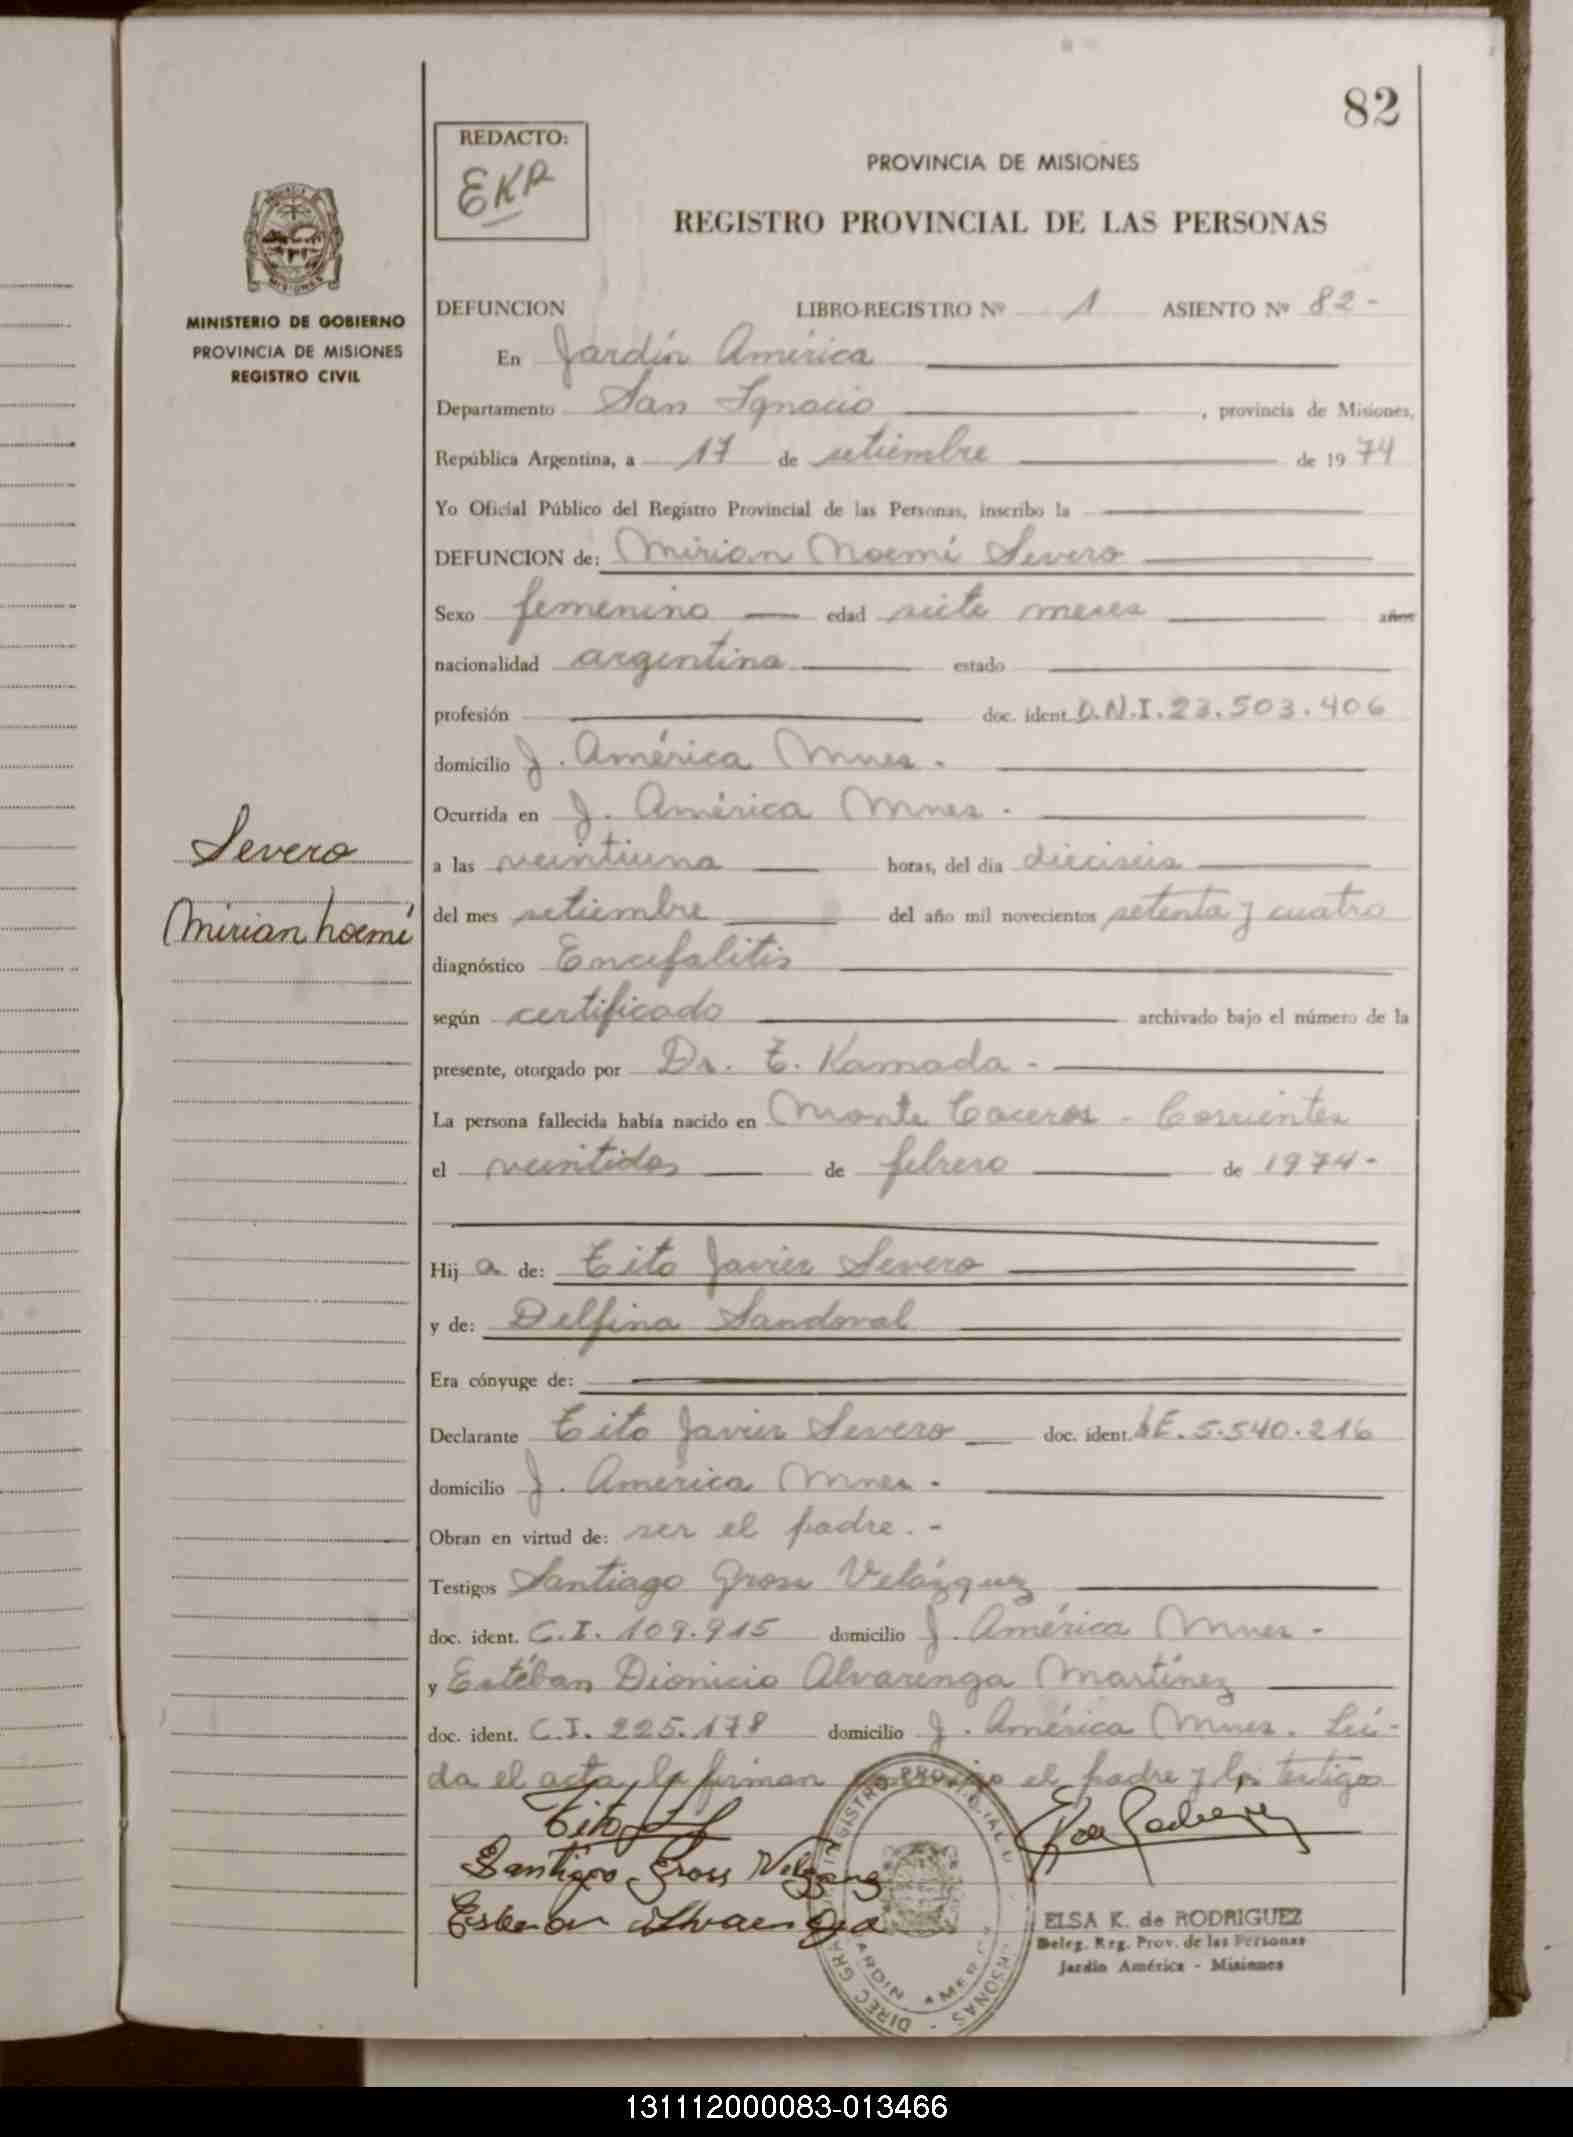 82
REDACTO:
EKR
PROVINCIA DE MISIONES
REGISTRO PROVINCIAL DE LAS PERSONAS
MINISTERIO DE GOBIERNO
PROVINCIA DE MISIONES
REGISTRO CIVIL
DEFUNCION LIBRO-REGISTRO Nº 1 ASIENTO Nº 82 -
En Jardín América
Departamento San Ignacio , provincia de Misiones,
República Argentina, a 17 de setiembre de 1974
Yo Oficial Público del Registro Provincial de las Personas, inscribo la
DEFUNCION de: Mirian Noemí Severo
Sexo femenino edad siete meses años
nacionalidad argentina estado
profesión doc. ident. D.N.I. 23.503.406
domicilio J. América Mnes.
Ocurrida en J. América Mnes.
Severo
Mirian Noemí
a las veintiuna horas, del día dieciseis
del mes setiembre del año mil novecientos setenta y cuatro
diagnóstico Encefalitis
según certificado archivado bajo el número de la
presente, otorgado por Dr. E. Kamada -
La persona fallecida había nacido en Monte Caceros - Corrientes
el veintidos de febrero de 1974 -
Hija de: Tito Javier Severo
y de: Delfina Sandoval
Era cónyuge de:
Declarante Tito Javier Severo doc. ident. LE. 5.540.216
domicilio J. América Mnes.
Obran en virtud de: ser el padre. -
Testigos Santiago Gross Velázquez
doc. ident. C.I. 109.915 domicilio J. América Mnes -
y Estéban Dionicio Alvarenga Martínez
doc. ident. C.I. 225.178 domicilio J. América Mnes. Leí-
da el acta, la firman conmigo el padre y los testigos
Tito
Santiago Gross Velázquez
Esteban Alvarenga
ELSA K. de RODRIGUEZ
Deleg. Reg. Prov. de las Personas
Jardín América - Misiones
JARDIN AMERICA
131112000083-013466